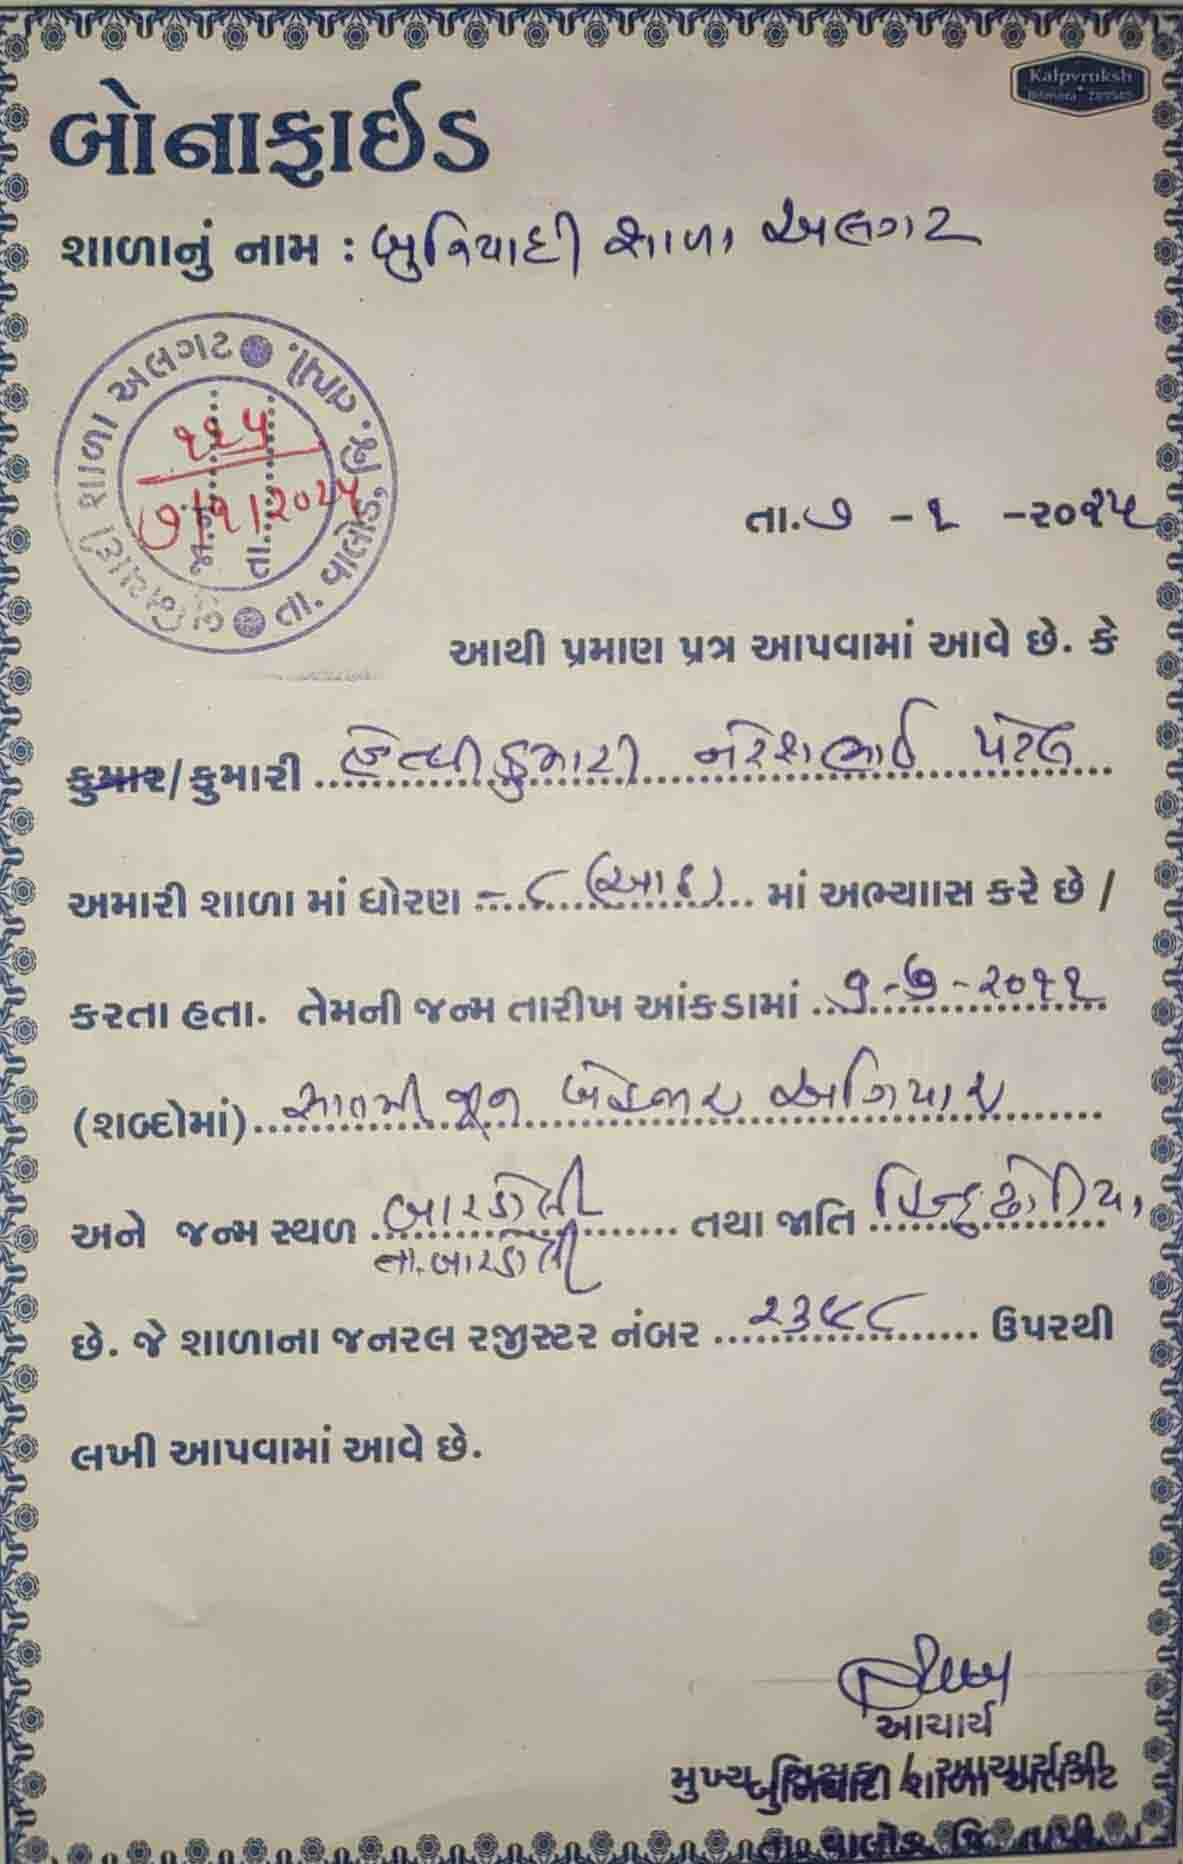 Kalpvruksh
બોનાફાઈડ
શાળાનું નામ : બુનિયાદી શાળા અલગટ
બુનિયાદી શાળા અલગટ
તા. વાલોડ, જી. તાપી.
જા.નં. ૧૧૫
તા. ૭/૧/૨૦૨૫
તા. ૭ - ૧ - ૨૦૨૫
આથી પ્રમાણ પત્ર આપવામાં આવે છે. કે
કુમાર/કુમારી હેન્વીકુમારી નરેશભાઈ પટેલ
અમારી શાળા માં ધોરણ - ૮ (આઠ) માં અભ્યાાસ કરે છે /
કરતા હતા. તેમની જન્મ તારીખ આંકડામાં ૭-૭-૨૦૧૧
(શબ્દોમાં) સાતમી જૂન બેહજાર અગિયાર
અને જન્મ સ્થળ બારડોલી તથા જાતિ હિન્દુ ઢોડિયા
તા. બારડોલી
છે. જે શાળાના જનરલ રજીસ્ટર નંબર ૨૩૯૮ ઉપરથી
લખી આપવામાં આવે છે.
આચાર્ય
મુખ્ય શિક્ષક / આચાર્યશ્રી
બુનિયાદી શાળા અલગટ
તા. વાલોડ જિ. તાપી